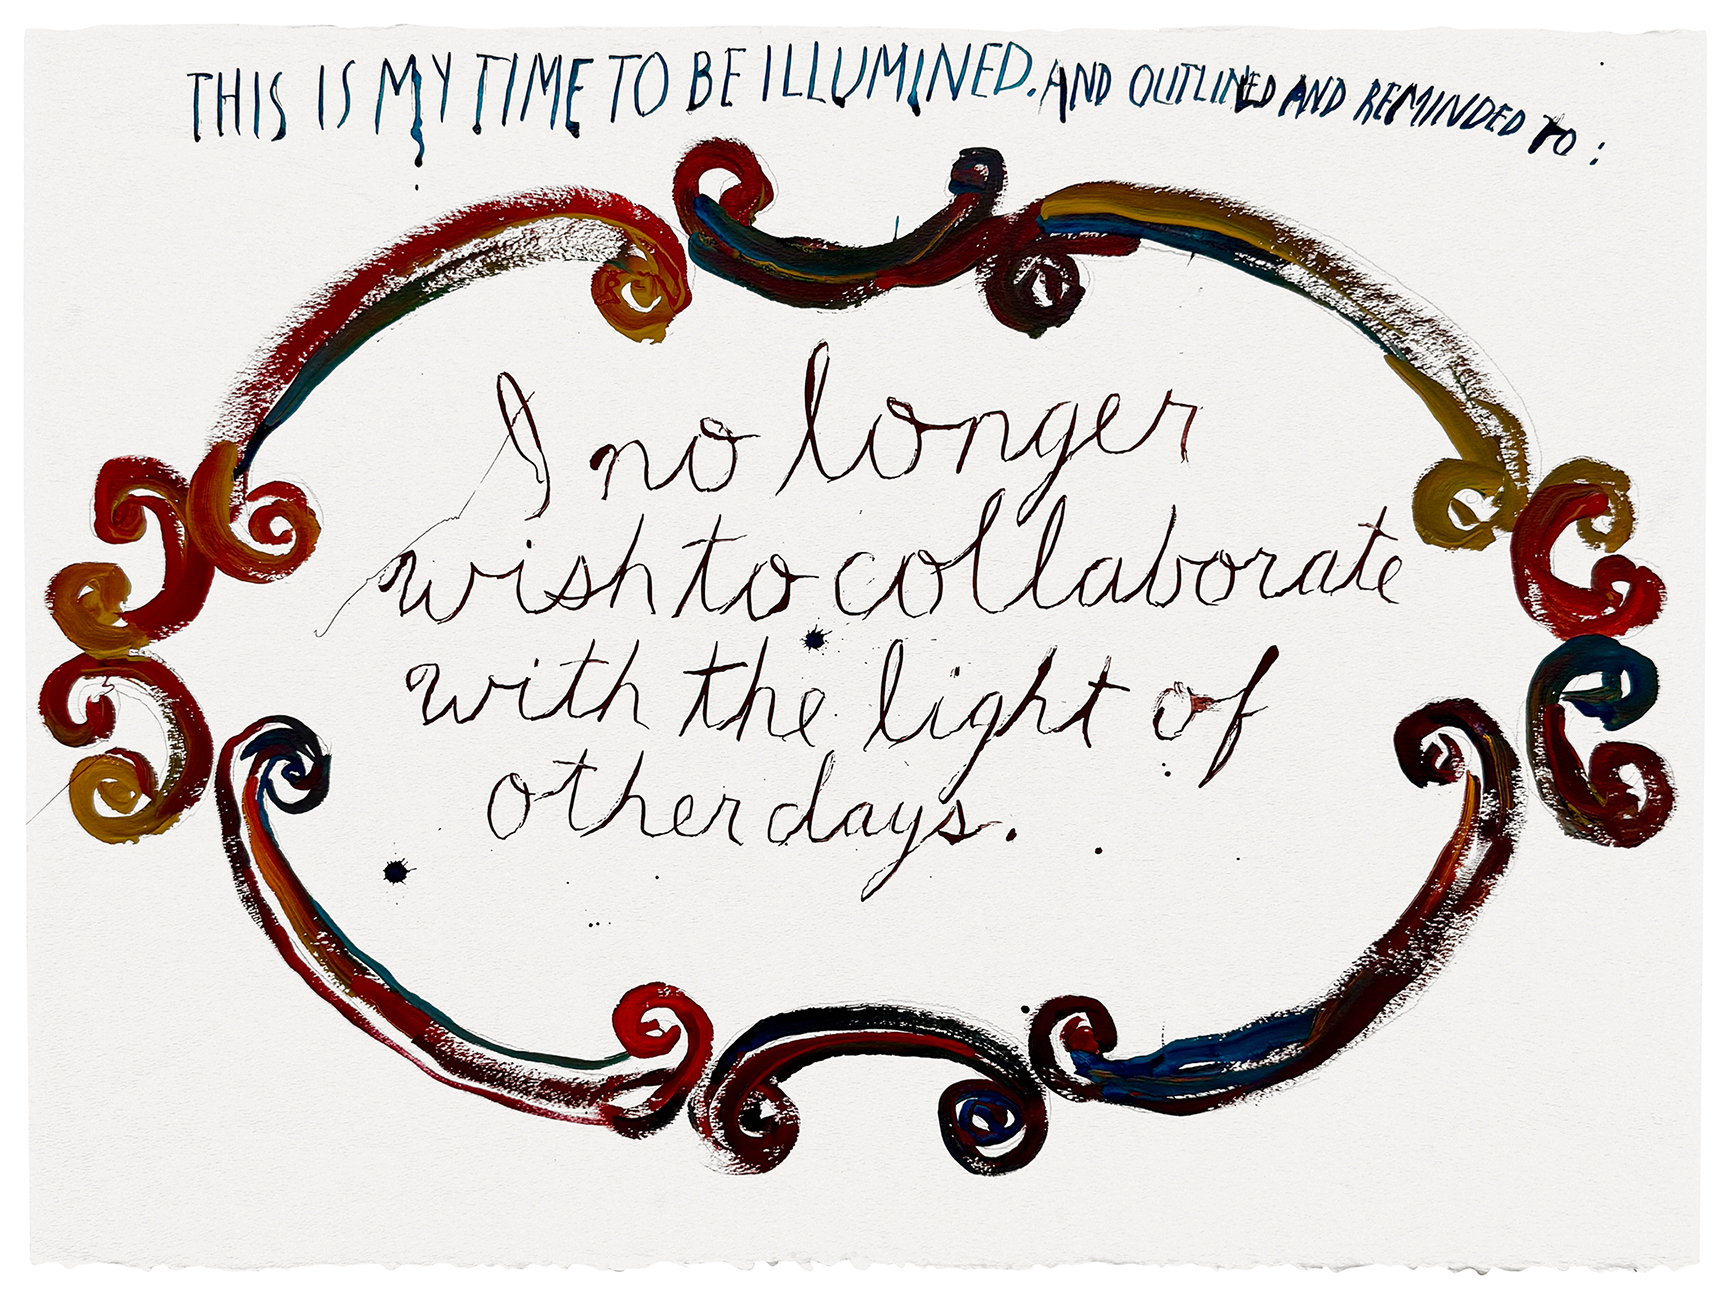 THIS IS MY TIME TO BE ILLUMINED. AND OUTLINED AND REMINDED TO:
I no longer
wish to collaborate
with the light of
other days.